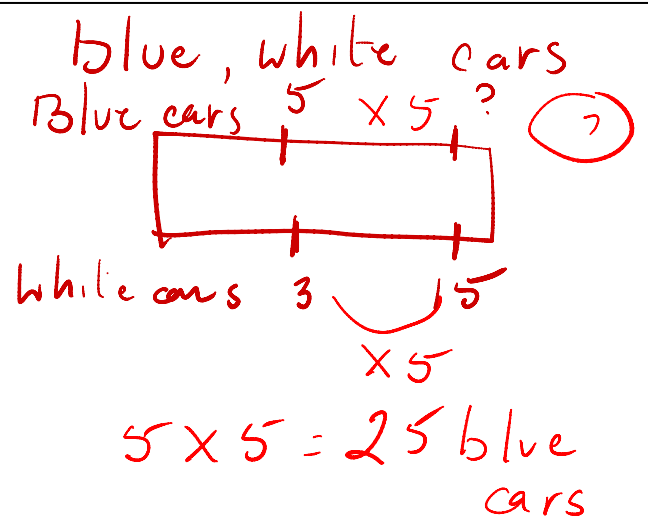 blue, white cars
Blue cars 5 × 5 ?
?
White cars 3 15
× 5
5 × 5 = 25 blue
cars